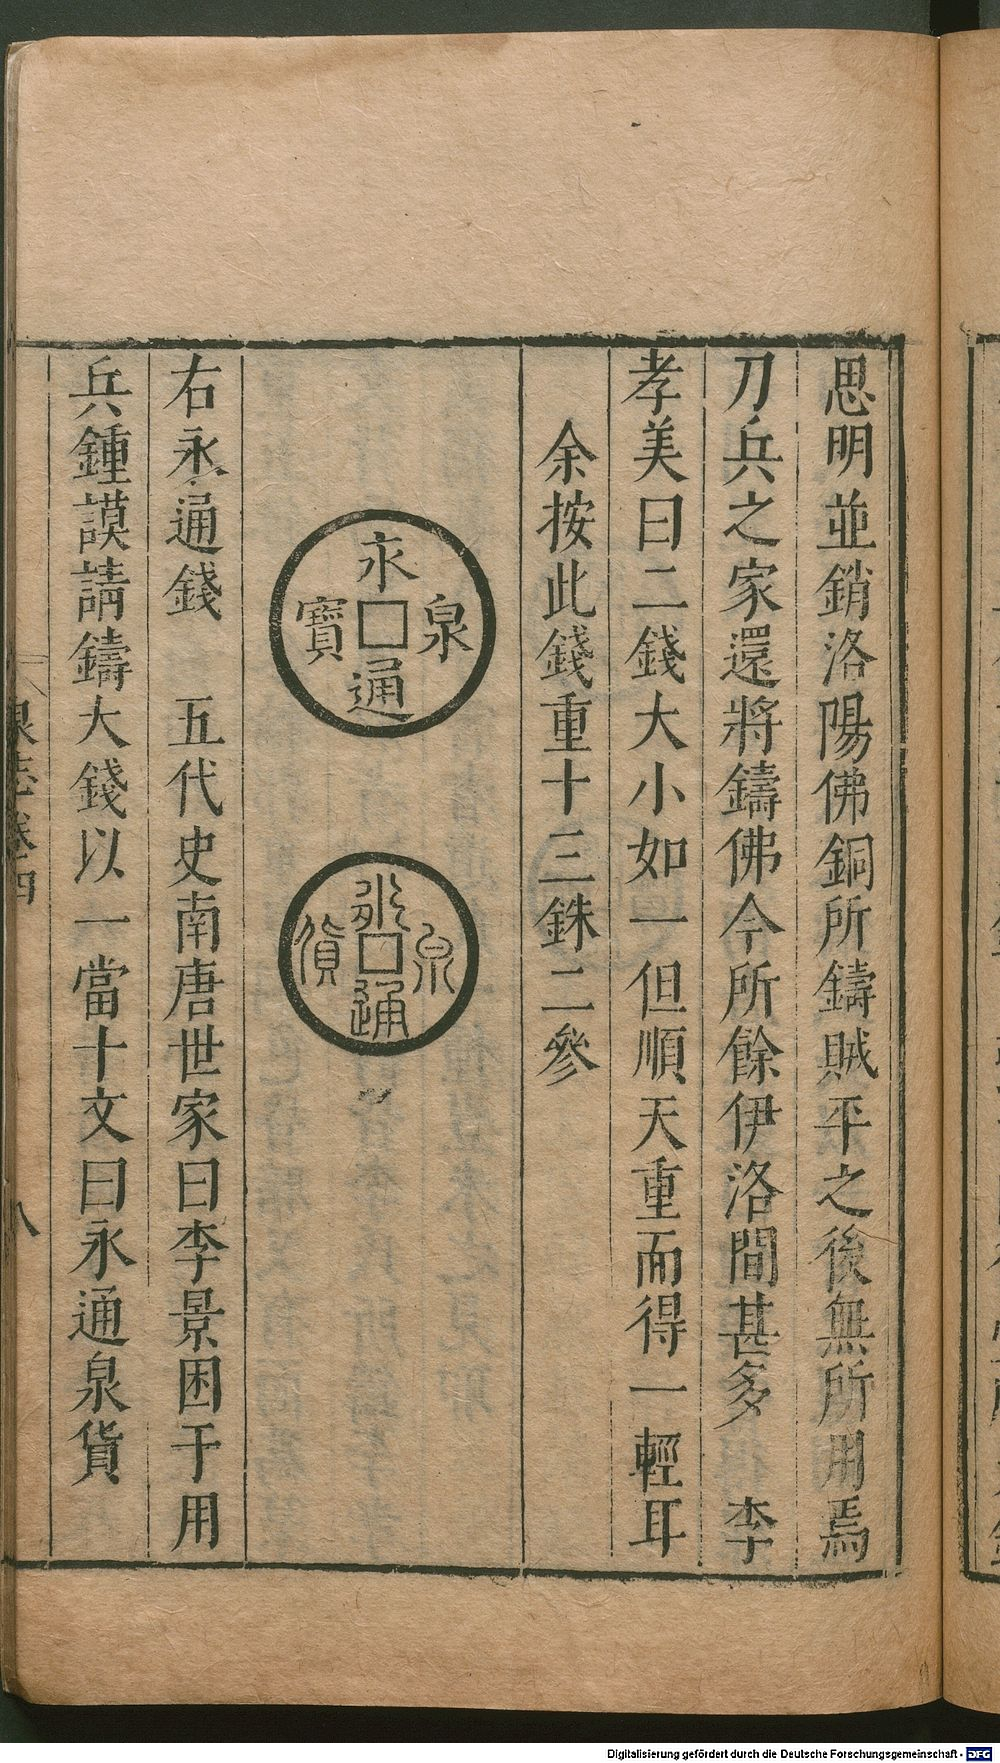 思明並銷洛陽佛銅所鑄賊平之後無所用焉
刀兵之家還將鑄佛今所餘伊洛間甚多　李
孝美曰二錢大小如一但順天重而得一輕耳
余按此錢重十三銖二參
永通泉寶
永通泉貨
右永通錢　五代史南唐世家曰李景困于用
兵鍾謨請鑄大錢以一當十文曰永通泉貨
泉志卷四
八
Digitalisierung gefördert durch die Deutsche Forschungsgemeinschaft - DFG